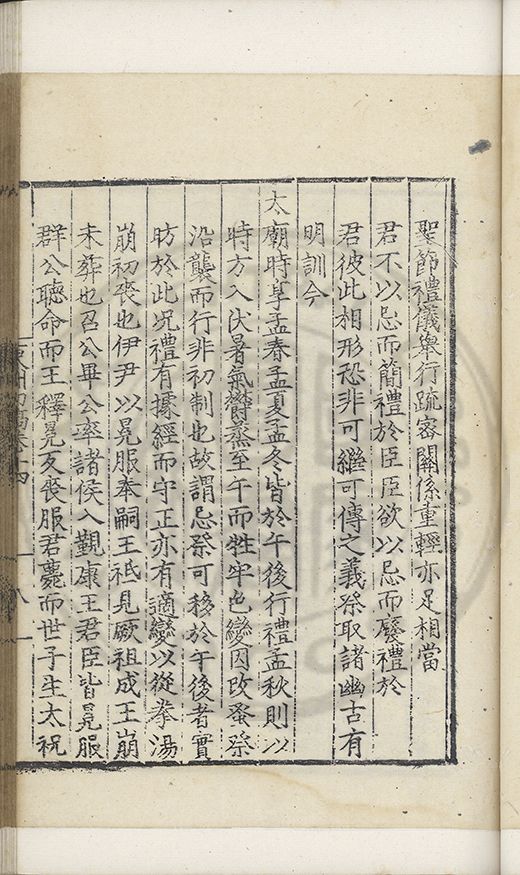 聖節禮儀舉行疏密關係重輕亦足相當
君不以忌而簡禮於臣臣欲以忌而廢禮於
君彼此相形恐非可繼可傳之義祭取諸幽古有
明訓今
太廟時享孟春孟夏孟冬皆於午後行禮孟秋則以
時方入伏暑氣欝蒸至午而牲牢色變因改蚤祭
沿襲而行非初制也故謂忌祭可移於午後者實
昉於此况禮有據經而守正亦有適變以從拳湯
崩初喪也伊尹以冕服奉嗣王祗見厥祖成王崩
未葬也召公畢公率諸侯入覲康王君臣皆冕服
群公聽命而王釋冕反喪服君薨而世子生太祝